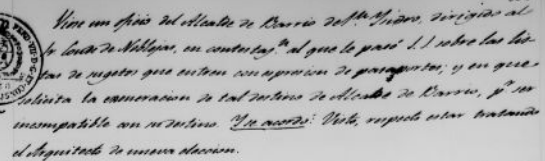 Vine un oficio del Alcalde de Barrio de Sn. Ysidro, dirigido al
Sr Conde de Noblejas, en contestazn. al que le pasó S.S. sobre las lis-
tas de sugetos que entren con aprecion de pasaportes; y en que
solicita la exoneracion de tal destino de Alcalde de Barrio, pr. ser
incompatible con su destino. Y se acordó: Visto, respecto estar tratando
el Arquitecto de nueva eleccion.